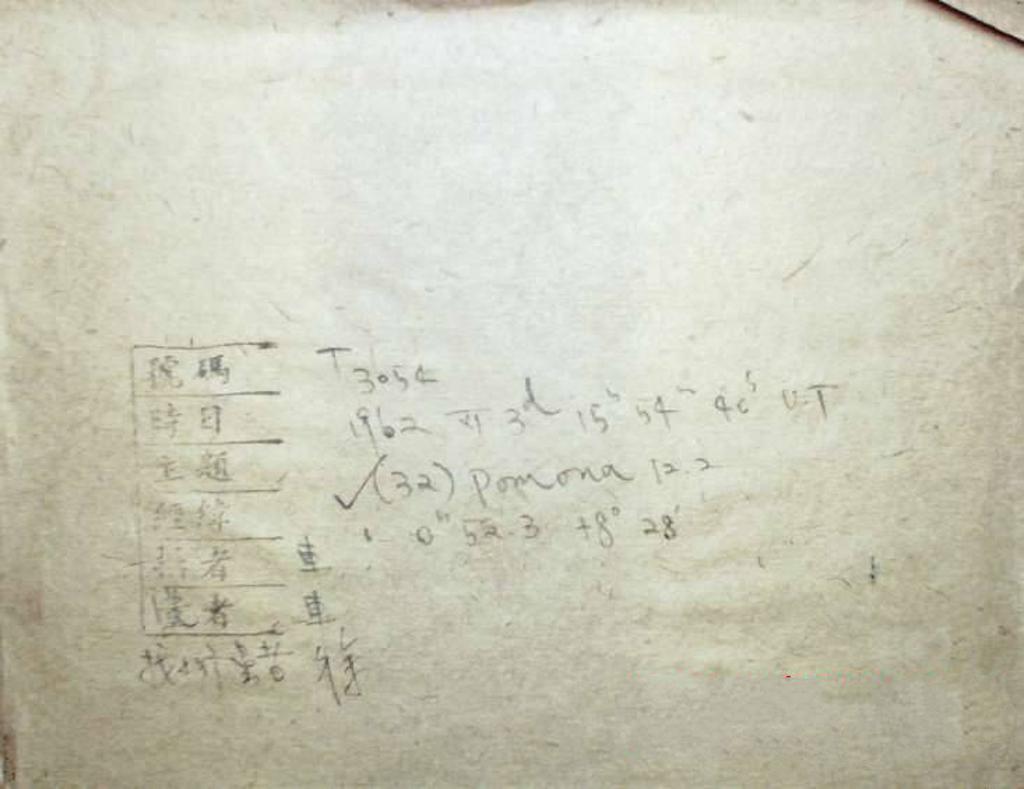 號碼 T 3054
時日 1962 VI 3d 15h 54m 40s U.T
主題 ✓(32) pomona 12.2
經緯 0h 52.3 +8° 28'
者 車
者 車
者 徐